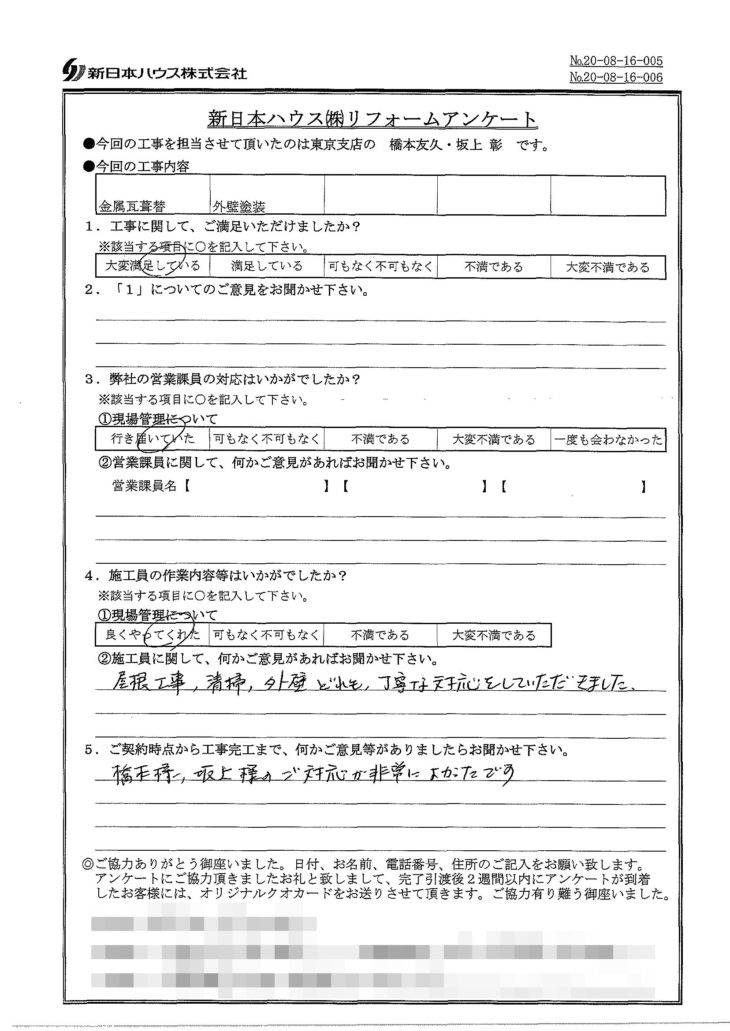 新日本ハウス株式会社
№20-08-16-005
№20-08-16-006
新日本ハウス㈱リフォームアンケート
●今回の工事を担当させて頂いたのは東京支店の 橋本友久・坂上 彰 です。
●今回の工事内容
金属瓦葺替 外壁塗装
1．工事に関して、ご満足いただけましたか？
※該当する項目に○を記入して下さい。
大変満足している 満足している 可もなく不可もなく 不満である 大変不満である
2．「1」についてのご意見をお聞かせ下さい。
3．弊社の営業課員の対応はいかがでしたか？
※該当する項目に○を記入して下さい。
①現場管理について
行き届いていた 可もなく不可もなく 不満である 大変不満である 一度も会わなかった
②営業課員に関して、何かご意見があればお聞かせ下さい。
営業課員名【 】【 】【 】
4．施工員の作業内容等はいかがでしたか？
※該当する項目に○を記入して下さい。
①現場管理について
良くやってくれた 可もなく不可もなく 不満である 大変不満である
②施工員に関して、何かご意見があればお聞かせ下さい。
屋根工事，清掃，外壁どれも，丁寧な対応をしていただきました．
5．ご契約時点から工事完工まで、何かご意見等がありましたらお聞かせ下さい。
橋本様，坂上様のご対応が非常によかったです
◎ご協力ありがとう御座いました。日付、お名前、電話番号、住所のご記入をお願い致します。
アンケートにご協力頂きましたお礼と致しまして、完了引渡後2週間以内にアンケートが到着
したお客様には、オリジナルクオカードをお送りさせて頂きます。ご協力有り難う御座いました。